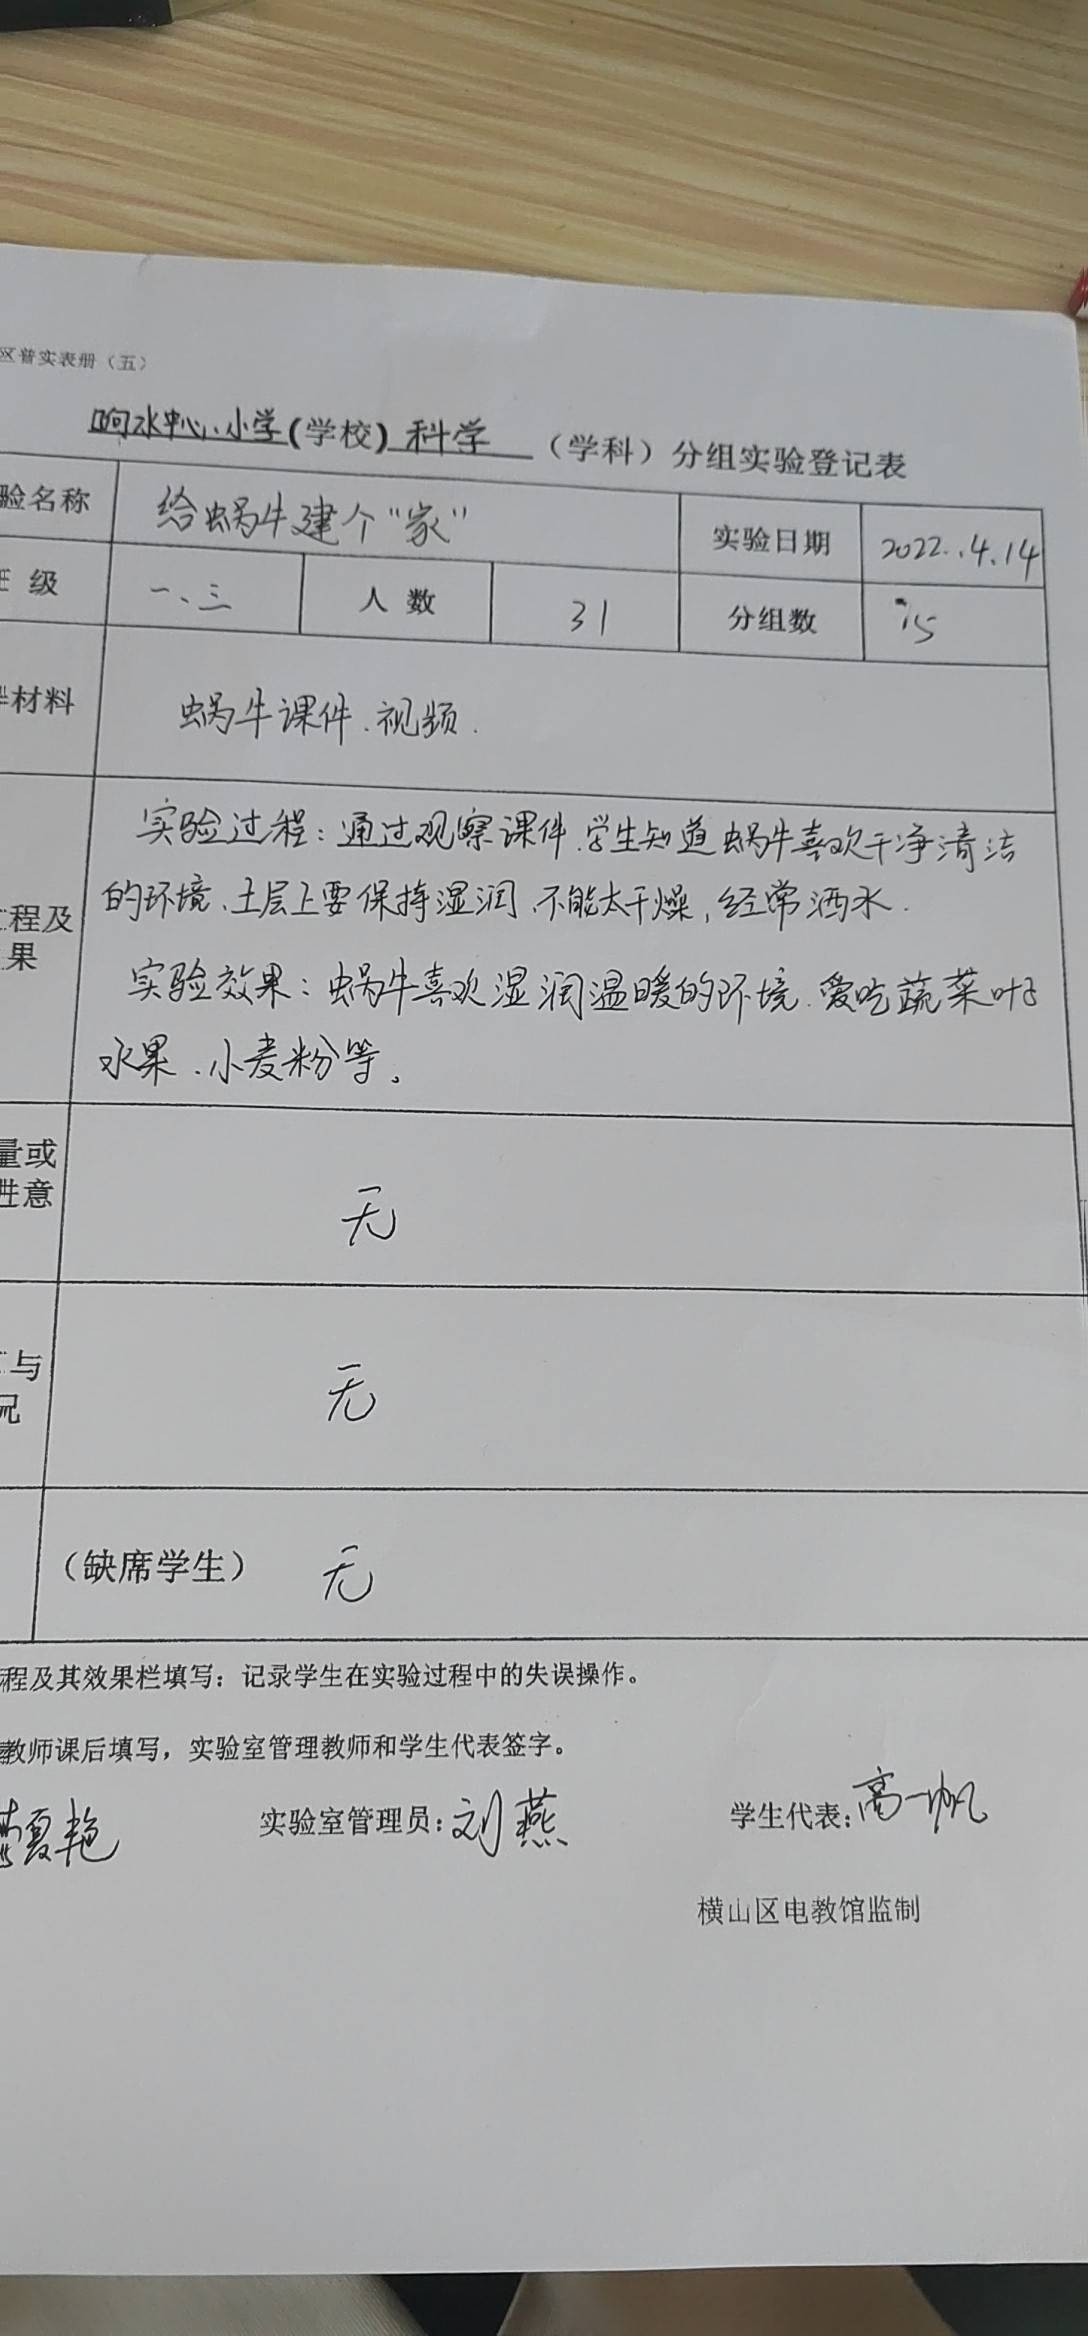 区普实表册（五）
响水中心小学(学校)科学（学科）分组实验登记表
验名称 给蜗牛建个“家” 实验日期 2022.4.14
级 一、三 人数 31 分组数 15
材料 蜗牛课件.视频.
实验过程：通过观察课件.学生知道蜗牛喜欢干净清洁
的环境、土层上要保持湿润、不能太干燥，经常洒水.
程及
果
实验效果：蜗牛喜欢湿润温暖的环境.爱吃蔬菜叶子
水果、小麦粉等。
量或
性意
无
与
况
无
（缺席学生） 无
程及其效果栏填写：记录学生在实验过程中的失误操作。
教师课后填写，实验室管理教师和学生代表签字。
夏艳 实验室管理员：刘燕 学生代表：高一帆
横山区电教馆监制